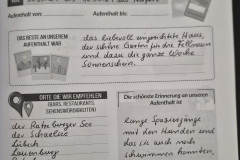 Aufenthalt von:
Aufenthalt bis:
DAS BESTE AN UNSEREM
AUFENTHALT WAR
das liebevoll eingerichtete Haus,
der schöne Garten für die Fellnasen
und dazu die ganze Woche
Sonnenschein.
ORTE DIE WIR EMPFEHLEN
(BARS, RESTAURANTS,
SEHENSWÜRDIGKEITEN)
der Ratzeburger See
der Schaalsee
Lübeck
Lauenburg
Die schönste Erinnerung an unseren
Aufenthalt ist
lange Spaziergänge
mit den Hunden und
das sie auch noch
schwimmen konnten